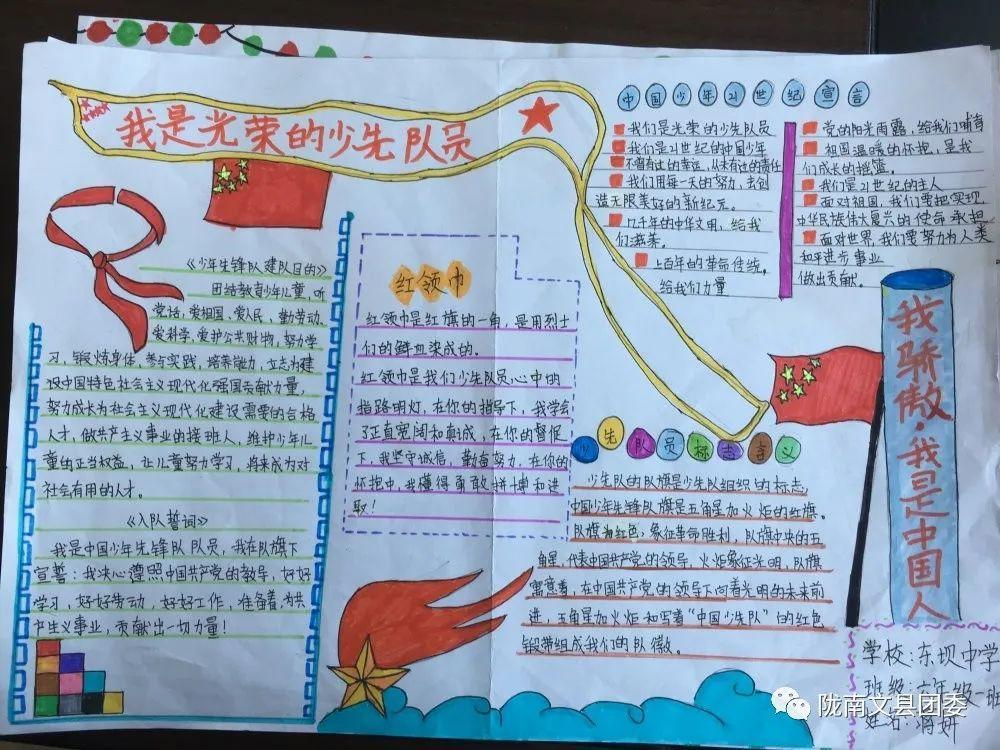 我是光荣的少先队员
《少年先锋队建队目的》
团结教育少年儿童，听
党话，爱祖国、爱人民、勤劳动、
爱科学、爱护公共财物，努力学
习，锻炼身体，参与实践，培养能力，立志为建
设中国特色社会主义现代化强国贡献力量，
努力成长为社会主义现代化建设需要的合格
人才，做共产主义事业的接班人，维护少年儿
童的正当权益，让儿童努力学习，将来成为对
社会有用的人才。
《入队誓词》
我是中国少年先锋队队员，我在队旗下
宣誓：我决心遵照中国共产党的教导，好好
学习，好好劳动，好好工作，准备着，为共
产主义事业，贡献出一切力量！
红领巾
红领巾是红旗的一角，是用烈士
们的鲜血染成的。
红领巾是我们少先队员心中的
指路明灯，在你的指导下，我学会
了正直宽阔和真诚，在你的督促
下，我坚守诚信，勤奋努力，在你的
怀抱中，我懂得勇敢拼搏和进
取！
中国少年21世纪宣言
我们是光荣的少先队员
我们是21世纪的中国少年
不曾有过的幸运，从未有过的责任
我们用每一天的努力，去创
造无限美好的新纪元。
几千年的中华文明，给我
们滋养。
上百年的革命传统，
给我们力量
党的阳光雨露，给我们哺育
祖国温暖的怀抱，是我
们成长的摇篮。
我们是21世纪的主人
面对祖国，我们要把实现
中华民族伟大复兴的使命承担
面对世界，我们要努力为人类
和平进步事业
做出贡献。
少先队员标志含义
少先队的队旗是少先队组织的标志，
中国少年先锋队旗是五角星加火炬的红旗。
队旗为红色，象征革命胜利，队旗中央的五
角星，代表中国共产党的领导，火炬象征光明，队旗
寓意着，在中国共产党的领导下向着光明的未来前
进，五角星加火炬和写着“中国少先队”的红色
锻带组成我们的队徽。
我骄傲·我是中国人
学校：东坝中学
班级：六年级一班
姓名：蒋妍
陇南文县团委